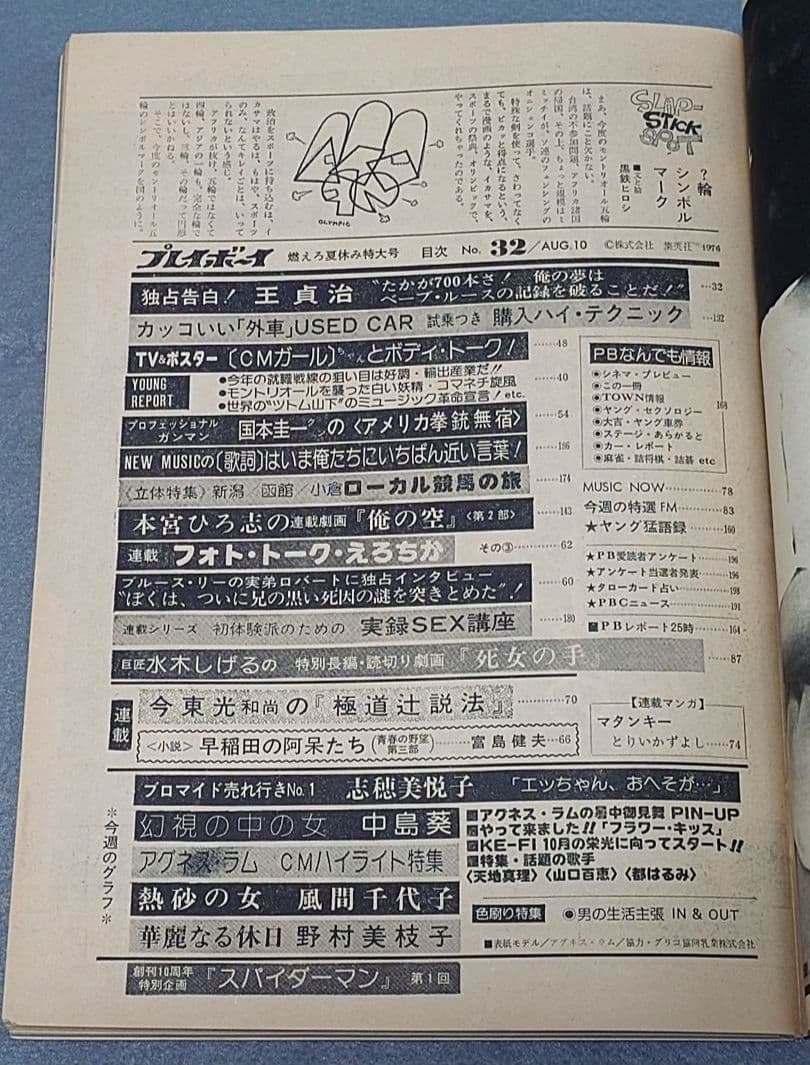 SLAP-
STICK
SPOT
?輪
シンボル
マーク
■文と絵
黒鉄ヒロシ
まあ、今度のモントリオール五輪
は、話題にこと欠かない。
台湾の不参加問題、アフリカ諸国
の帰国、その上、ちょっと規模はミ
ミッチイが、ソ連のフェンシングの
オニシェンコ選手。
特殊な剣を使って、さわってなく
ても、ピカッと得点になるという、
まるで漫画のような、イカサマを、
スポーツの祭典、オリンピックで、
やってくれちゃったのである。
OLYMPIC
政治をスポーツに持ち込むは、イ
カサマはやるは、もはや、スポーツ
のみ、なんてキレイごとは、いって
られないという感じ。
アフリカが抜け、五輪ではなくて
四輪、アジアの一輪も、完全な輪で
はないし、三輪、その輪だって円形
とはいいかねる。
そこで、今度のモントリオール五
輪のシンボルマークを図のように。
プレイボーイ 燃えろ夏休み特大号 目次 No.32/AUG.10 ©株式会社 集英社 1976
独占告白! 王貞治 "たかが700本さ! 俺の夢は
ベーブ・ルースの記録を破ることだ!" …32
カッコいい「外車」USED CAR 試乗つき 購入ハイ・テクニック …192
TV&ポスター〔CMガール〕ちゃんとボディ・トーク! ……48
YOUNG
REPORT
●今年の就職戦線の狙い目は好調・輸出産業だ!!
●モントリオールを襲った白い妖精・コマネチ旋風
●世界の"ツトム山下"のミュージック革命宣言! etc.
……40
プロフェッショナル
ガンマン 国本圭一クンの〈アメリカ拳銃無宿〉 ……54
NEW MUSICの〔歌詞〕はいま俺たちにいちばん近い言葉! ……186
〈立体特集〉新潟/函館/小倉ローカル競馬の旅 ……174
本宮ひろ志の連載劇画『俺の空』〈第2部〉 ……143
連載 フォト・トーク・えろちか その③………62
ブルース・リーの実弟ロバートに独占インタビュー
"ぼくは、ついに兄の黒い死因の謎を突きとめた"! ……60
連載シリーズ 初体験派のための 実録SEX講座 ……180
巨匠水木しげるの 特別長編・読切り劇画『死女の手』 ……87
PBなんでも情報
●シネマ・プレビュー
●この一冊
●TOWN情報
●ヤング・セクソロジー
●大吉・ヤング車券
●ステージ・あらかると
●カー・レポート
●麻雀・詰将棋・詰碁 etc
168
MUSIC NOW………78
今週の特選FM………83
★ヤング猛語録………160
★PB愛読者アンケート……196
★アンケート当選者発表……196
★タローカード占い……198
★PBCニュース……191
■PBレポート25時……164
連載
今東光和尚の『極道辻説法』………70
〈小説〉早稲田の阿呆たち(青春の野望 第三部)………富島健夫…66
【連載マンガ】
マタンキー
とりいかずよし……74
*今週のグラフ*
ブロマイド売れ行きNo.1 志穂美悦子 「エッちゃん、おへそが…」
幻視の中の女 中島葵
アグネス・ラム CMハイライト特集
熱砂の女 風間千代子
華麗なる休日 野村美枝子
■アグネス・ラムの暑中御見舞 PIN-UP
■やって来ました!!「フラワー・キッス」
■KE-FI 10月の栄光に向ってスタート!!
■特集・話題の歌手
〈天地真理〉〈山口百恵〉〈都はるみ〉
色刷り特集 ●男の生活主張 IN & OUT
■表紙モデル/アグネス・ラム/協力・グリコ協同乳業株式会社
創刊10周年
特別企画 『スパイダーマン』 第1回